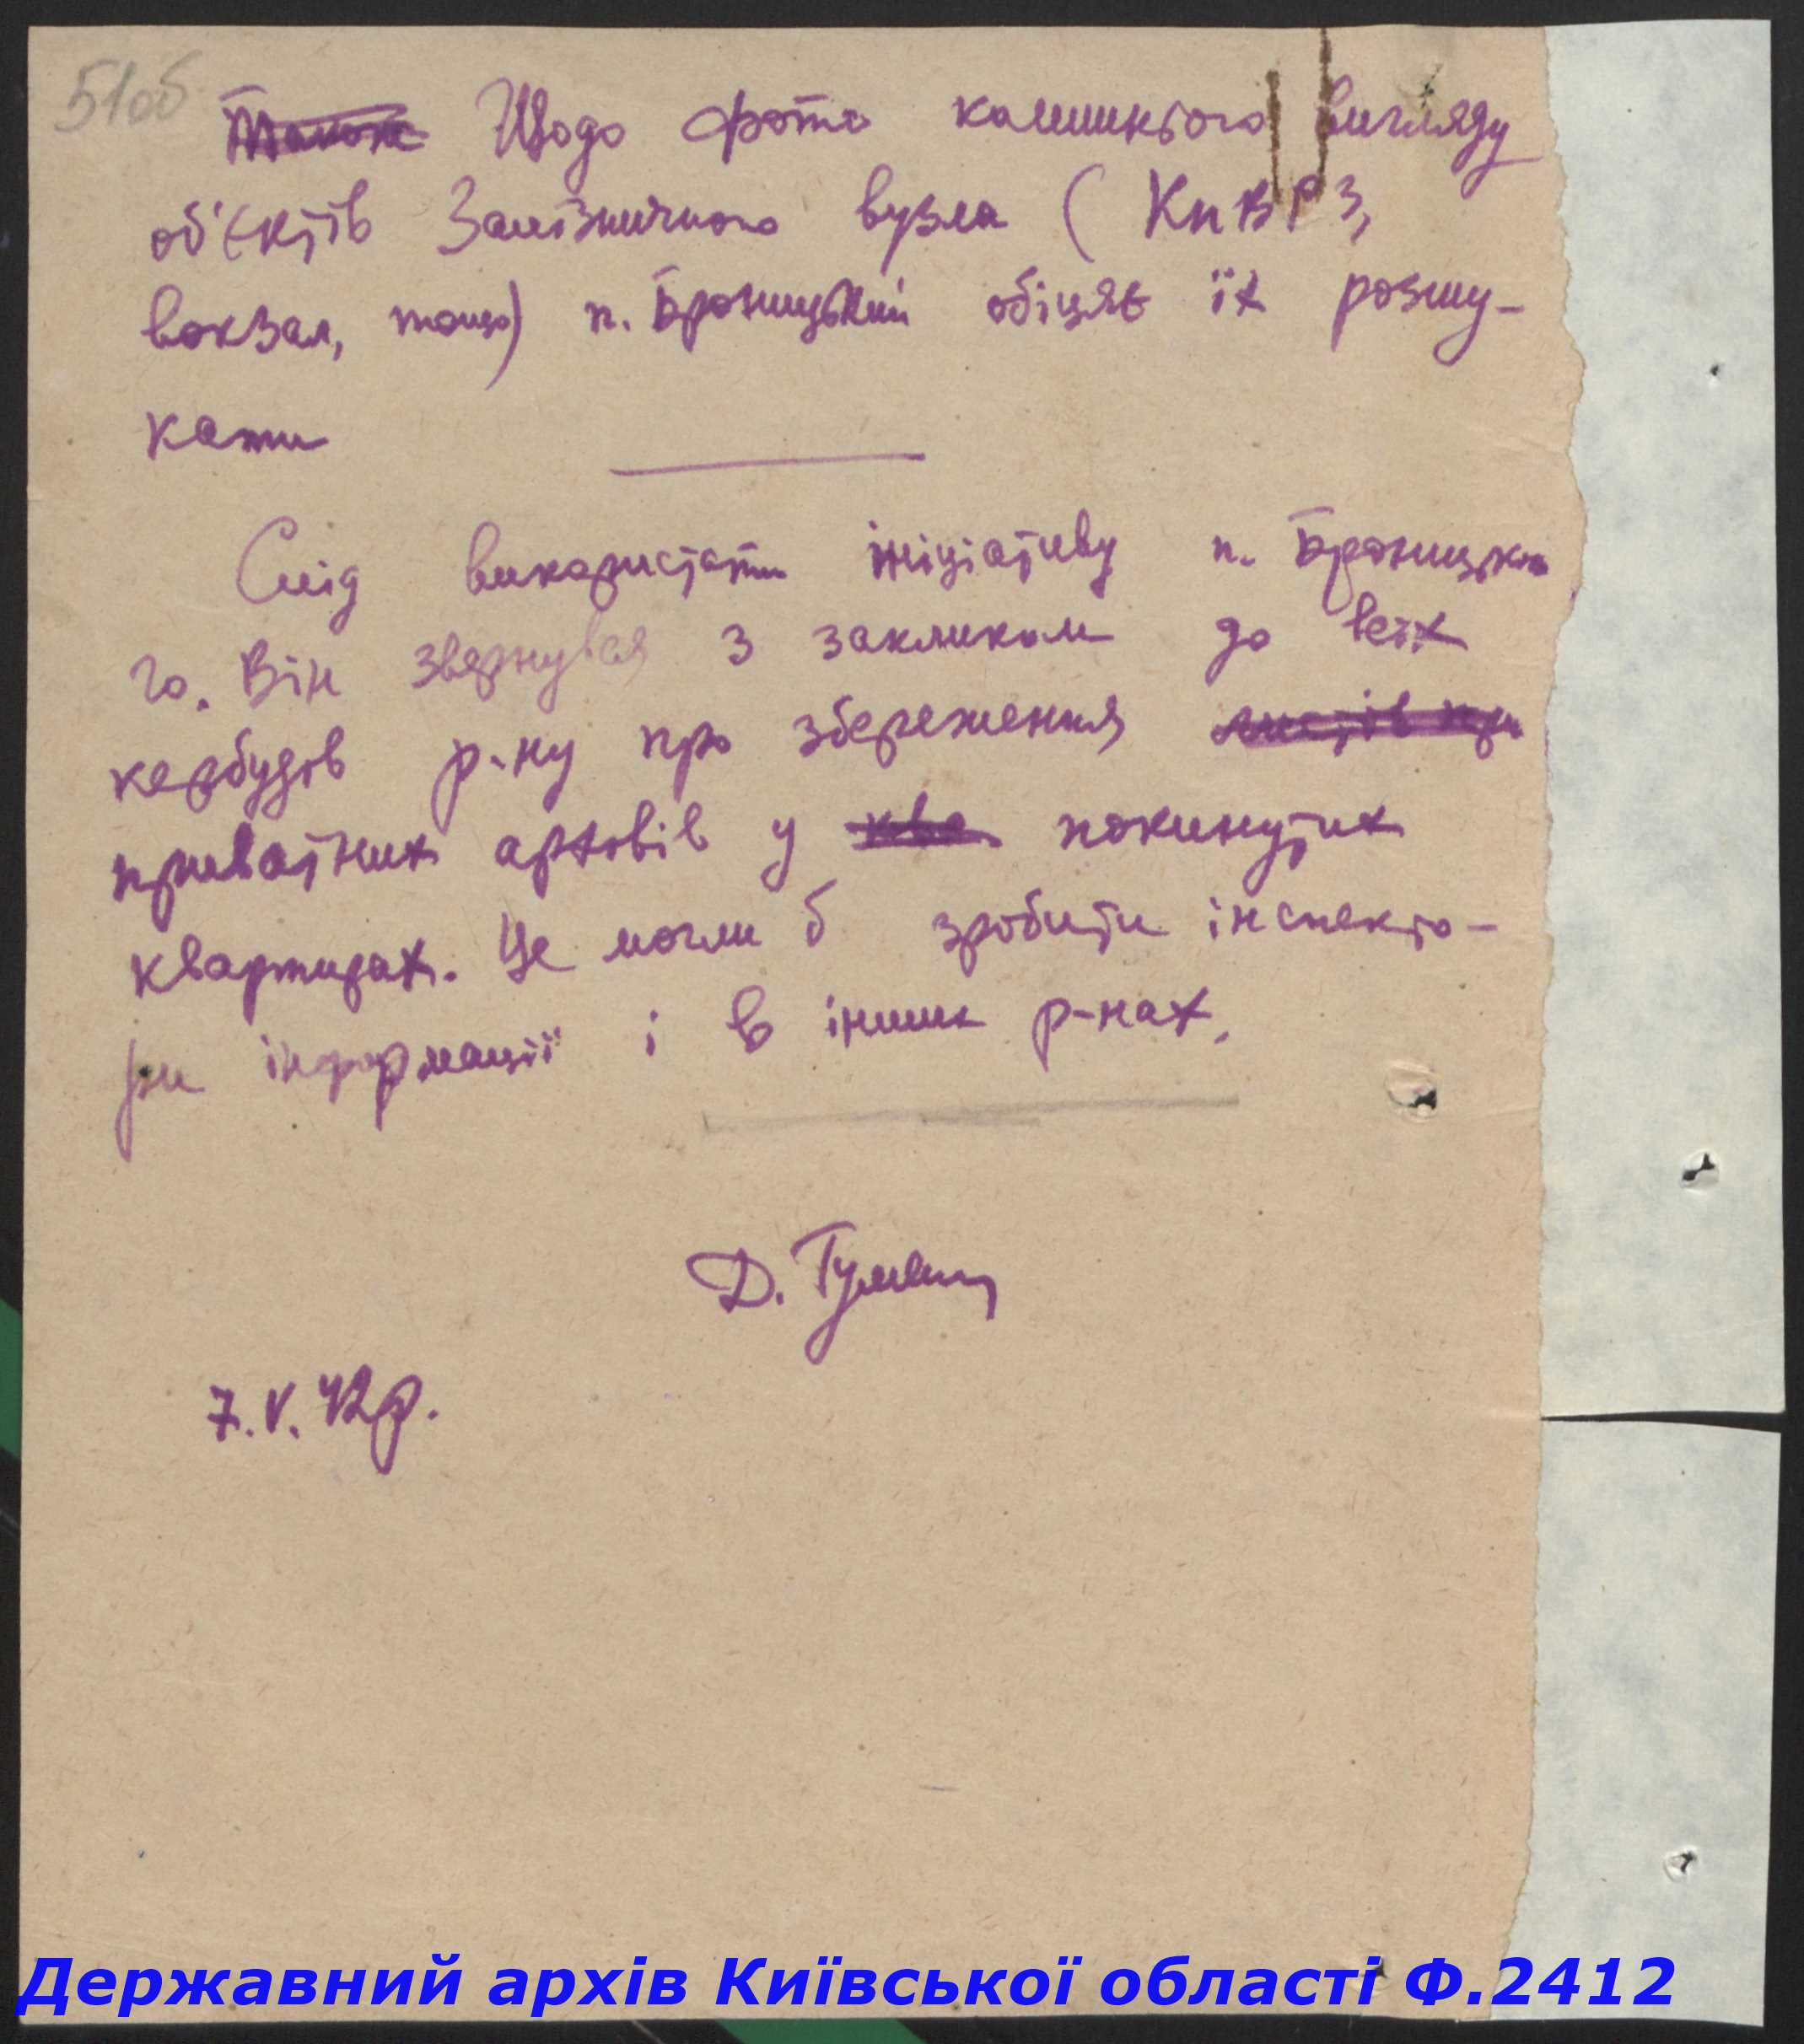 51об
Також Щодо фото колишнього вигляду
об'єктів Залізничного вузла (КПВРЗ,
вокзал, тощо) п. Броницький обіцяє їх розшу-
кати
Слід використати ініціативу п. Броницько
го. Він звернувся з закликом до всіх
кербудів р-ну про збереження листів при
приватних архівів у ква покинутих
квартирах. Це могли б зробити інспекто-
ри інформації і в інших р-нах.
Д.
7.V.42р.
Державний архів Київської області Ф.2412